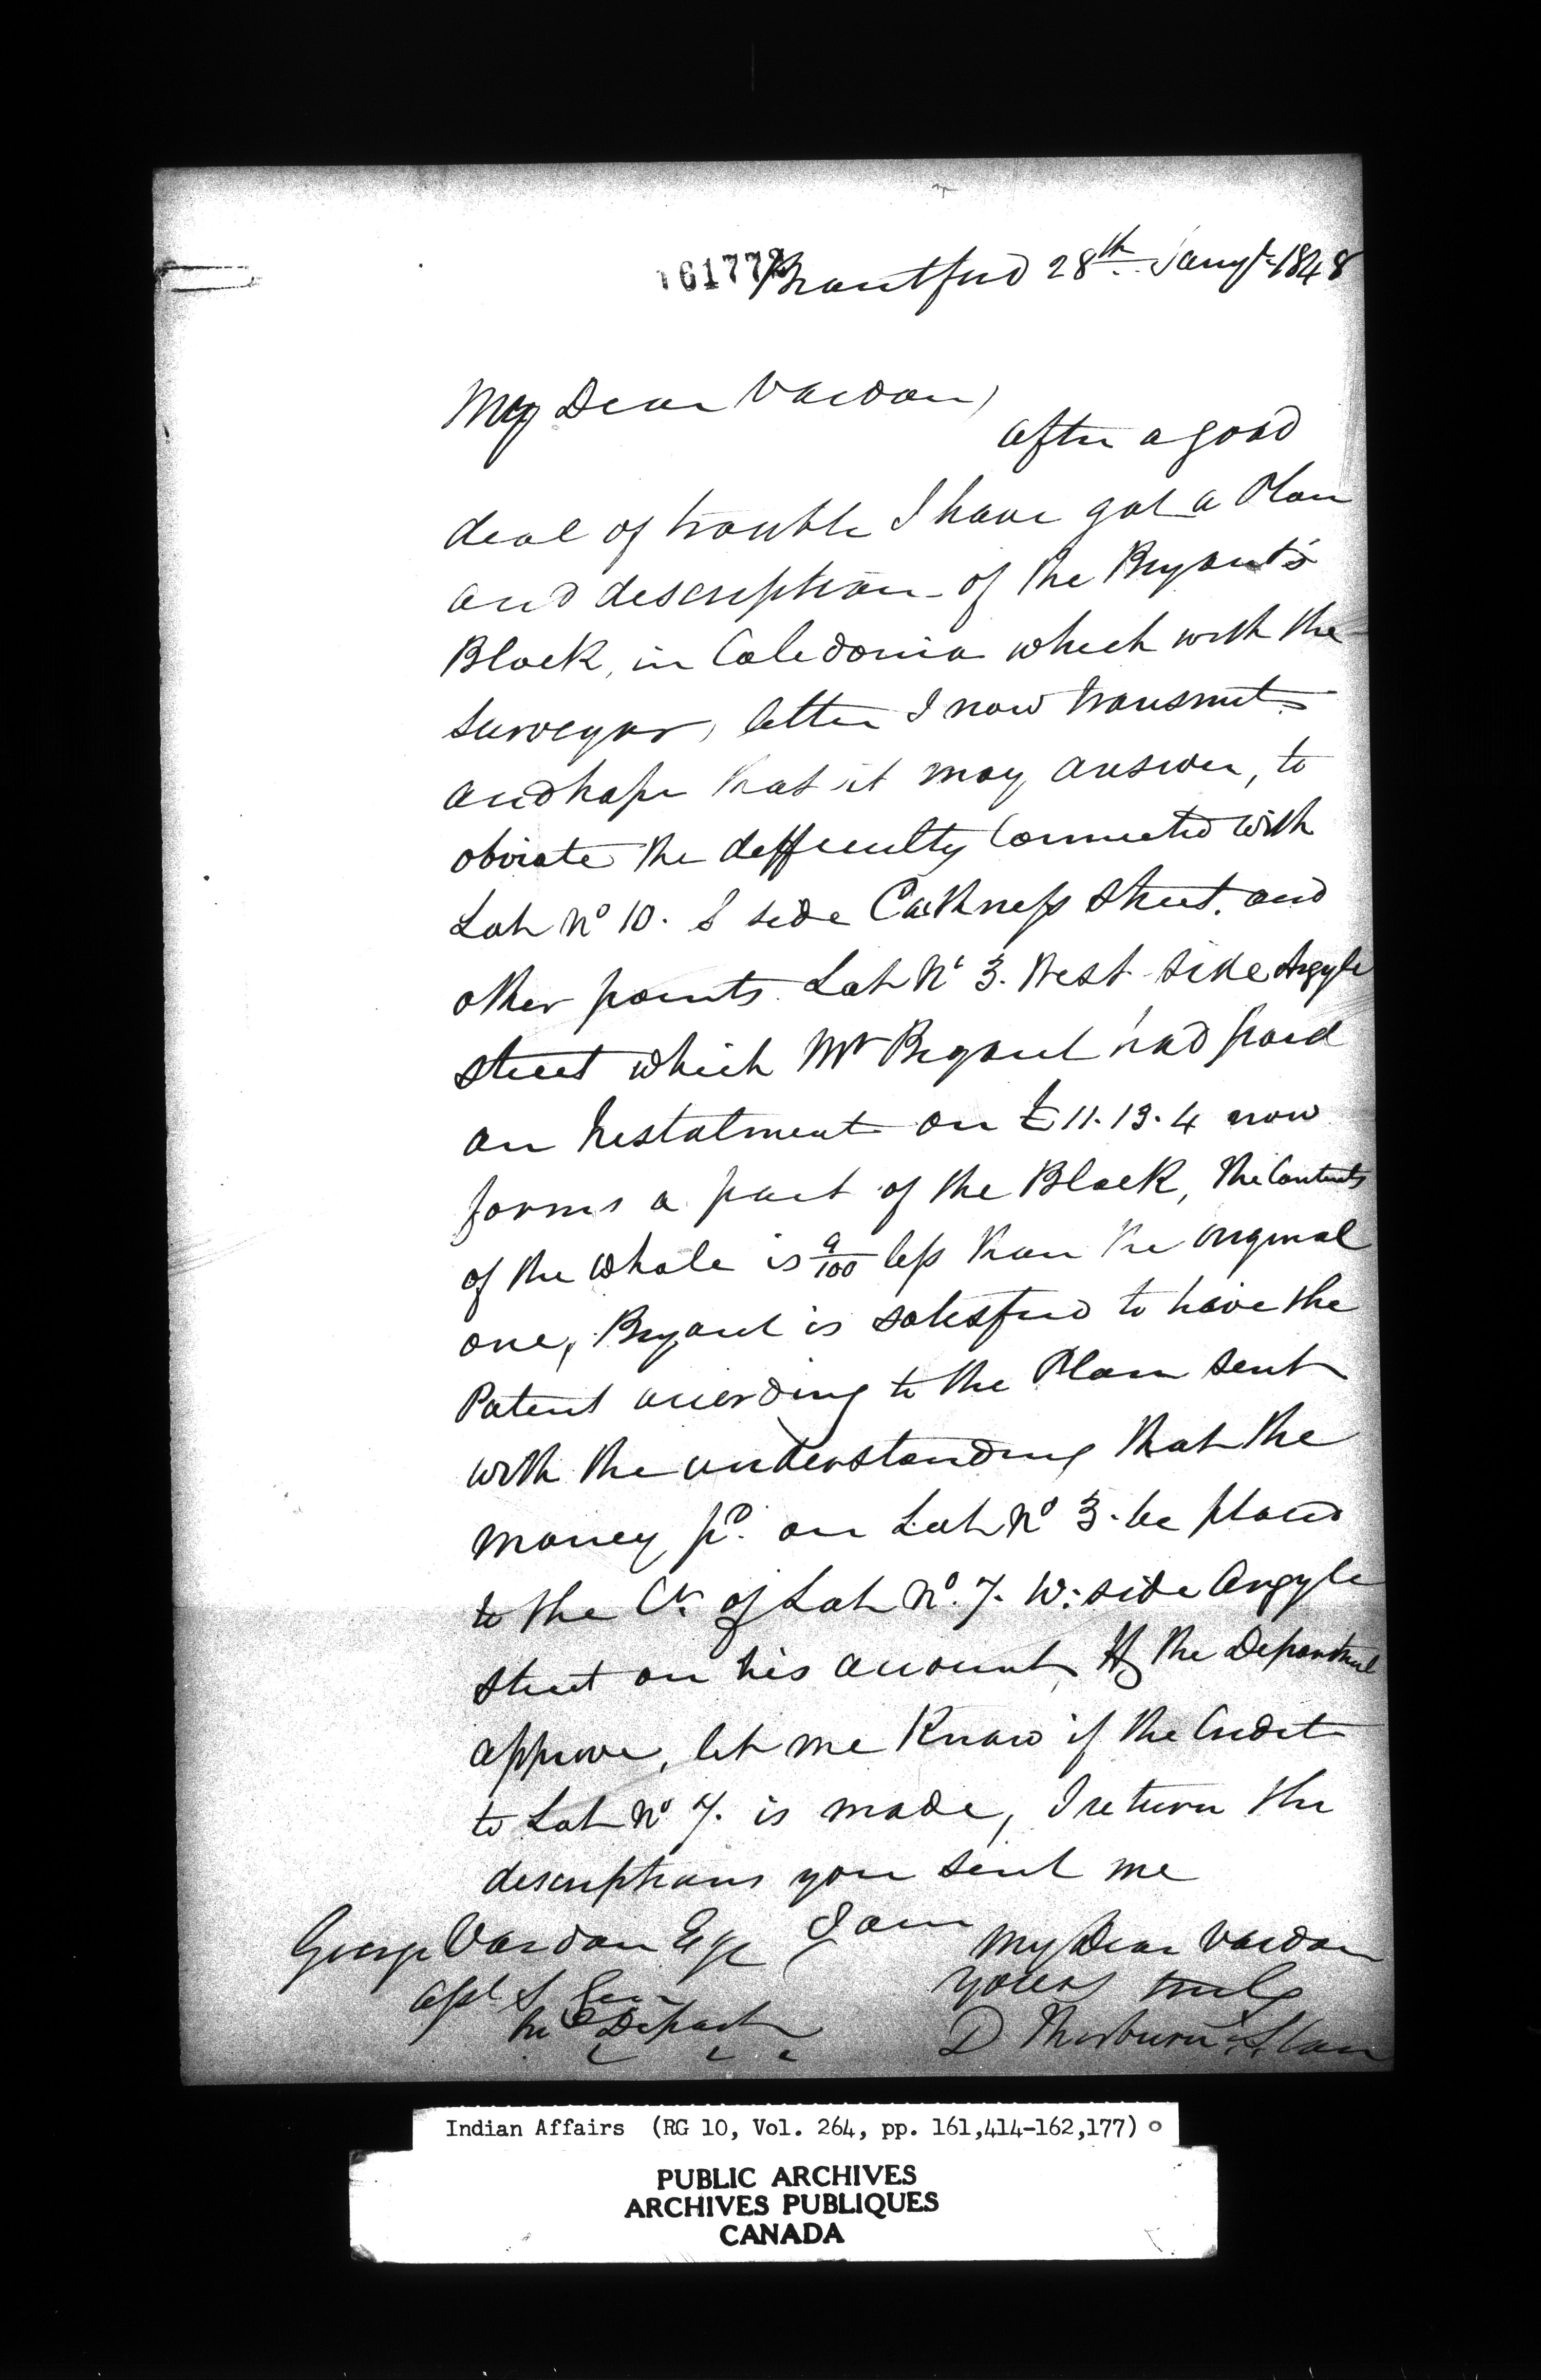 161772
Brantford 28th Jany 1848
My Dear Vardon,
after a good
deal of trouble I have got a Plan
and description of the Bryant's
Block, in Caledonia which with the
Surveyors letter I now transmit
and hope that it may answer, to
obviate the difficulty Connected with
Lot No 10. S side Caithness Street. and
other points. Lot No 3. West side Argyle
Street which Mr Bryant had paid
an Instalment on £11.13.4 now
forms a part of the Block, the Contents
of the whole is 9/100 less than the original
one, Bryant is satisfied to have the
Patent according to the Plan sent
with the understanding that the
money pd. on Lot No 3. be placed
to the Cr. of Lot No. 7. W: side Argyle
Street on his account, If the Department
approve, let me know if the Credit
to Lot No 7. is made, I return the
descriptions you sent me
I am
My Dear Vardon
George Vardon Esqe
Yours truly
D Thorburn
Indian Affairs (RG 10, Vol. 264, pp. 161,414-162,177)
PUBLIC ARCHIVES
ARCHIVES PUBLIQUES
CANADA